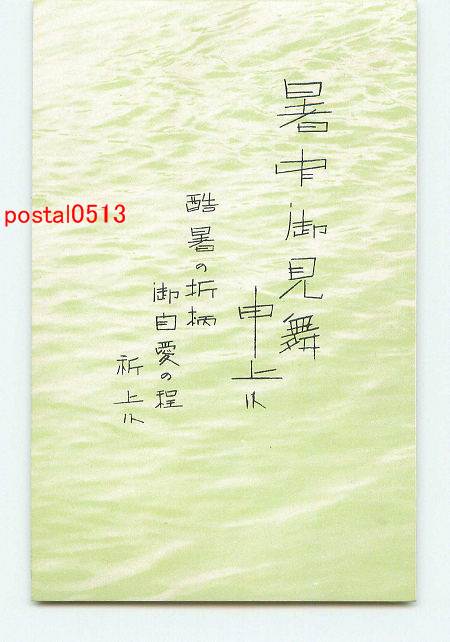 暑中御見舞
申上候
酷暑の折柄
御自愛の程
祈上候
postal0513